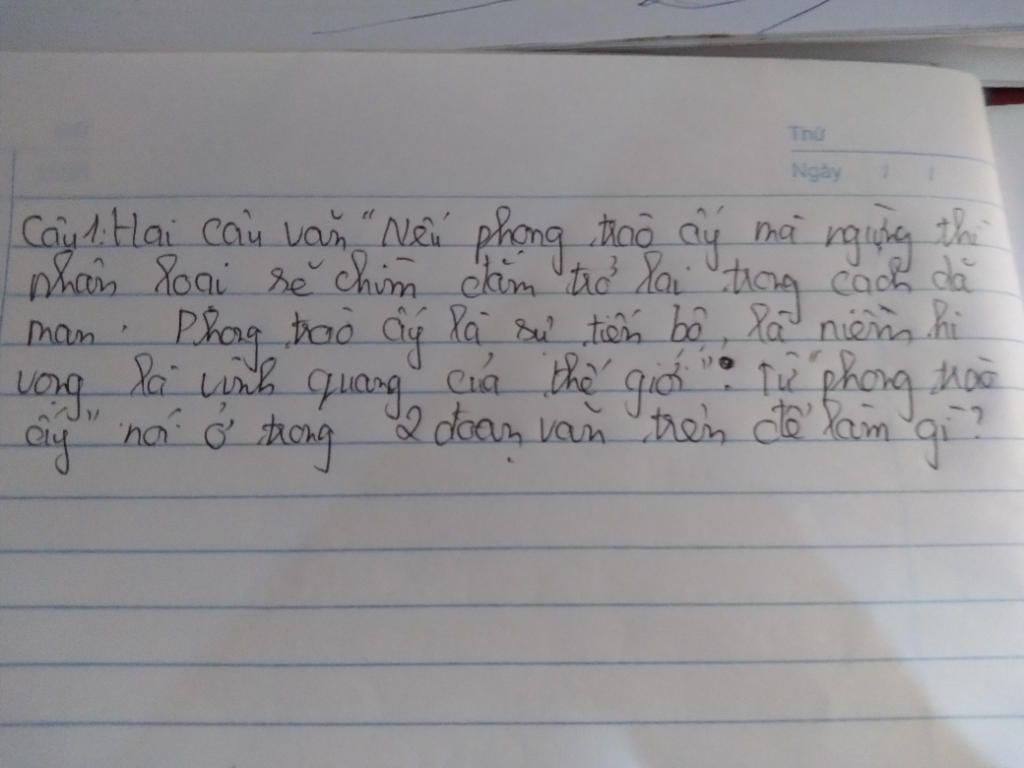 Thứ
Ngày / /
Câu 1: Hai câu văn "Nếu phong trào ấy mà ngừng thì
nhân loại sẽ chìm đắm trở lại trong cách dã
man. Phong trào ấy là sự tiến bộ, là niềm hi
vọng là vinh quang của thế giới". Từ "phong trào
ấy" nó ở trong 2 đoạn văn trên để làm gì?